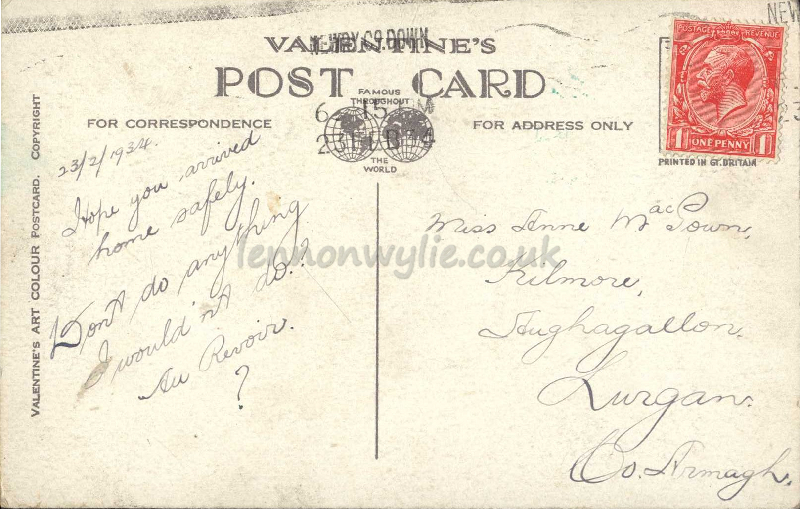 NEWRY CO. DOWN
NEW
VALENTINE'S
POST CARD
FAMOUS
THROUGHOUT
THE
WORLD
6 15 M
23 FEB 34
FOR CORRESPONDENCE
FOR ADDRESS ONLY
POSTAGE REVENUE
1 ONE PENNY 1
PRINTED IN GT. BRITAIN
VALENTINE'S ART COLOUR POSTCARD. COPYRIGHT
23/2/1934.
Hope you arrived
home safely.
Don't do anything
I would'nt do.?
Au Revoir.
?
Miss Anne MacGown,
Kilmore,
Aughagallon.
Lurgan.
Co. Armagh.
lennonwylie.co.uk